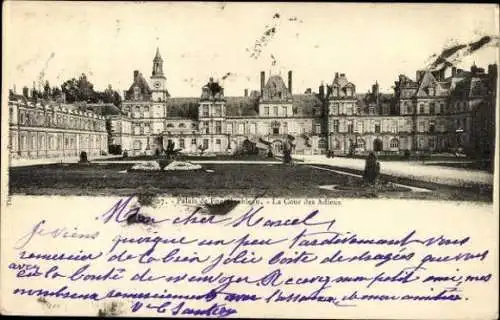 27. Palais de Fontainebleau. - La Cour des Adieux
Mon cher Marcel,
Je viens quoique un peu tardivement vous
remercier de la bien jolie boîte de dragées que vous
avez eu la bonté de m'envoyer. Recevez mon petit ami, mes
nombreux remerciements avec l'assurance de mon amitié